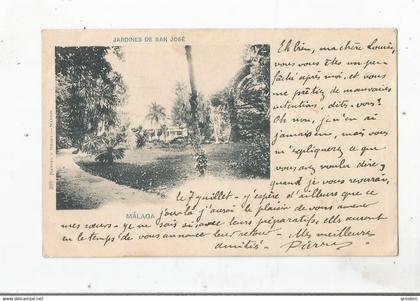 JARDINES DE SAN JOSÉ
Eh bien, ma chère Louise,
vous vous êtes un peu
fâchée après moi, et vous
me prêtez de mauvaises
intentions, dites-vous?
Oh non, je n'en ai
jamais eu, mais vous
m'expliquerez ce que
vous avez voulu dire,
quand je vous reverrai,
MÁLAGA
le 7 juillet - j'espère d'ailleurs que ce
jour-là j'aurai le plaisir de vous amener
mes sœurs - je ne sais où avec leurs préparatifs, elles auront
eu le temps de vous annoncer leur retour - Mes meilleures
amitiés - Pierre